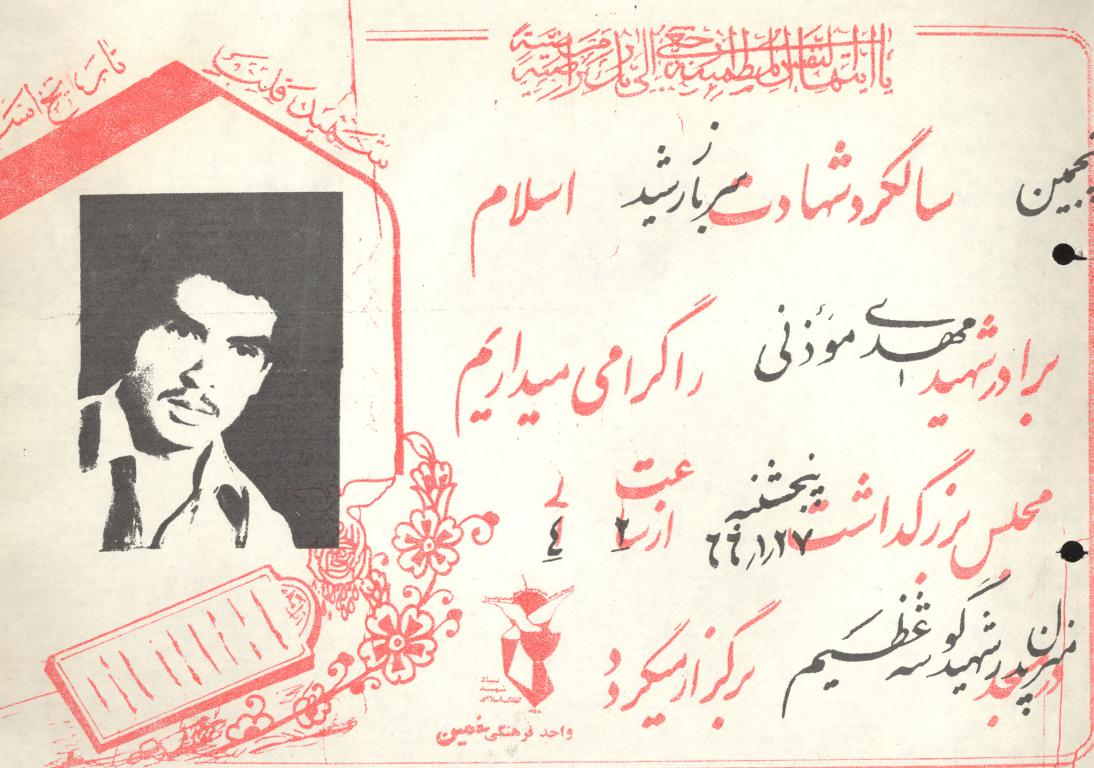 یا ایتها النفس المطمئنه ارجعی الی ربک راضیة مرضیة
شهیدان قلب
تاریخ است
پنجمین سالگرد شهادت سرباز رشید اسلام
برادر شهید مهدی مؤذنی را گرامی میداریم
مجلس بزرگداشت پنجشنبه ۶۹/۱/۲۷ از ساعت ۲ الی ۴
در منزل پدر شهید گوشه عظیم برگزار میگردد
بنیاد شهید انقلاب اسلامی
واحد فرهنگی خمین